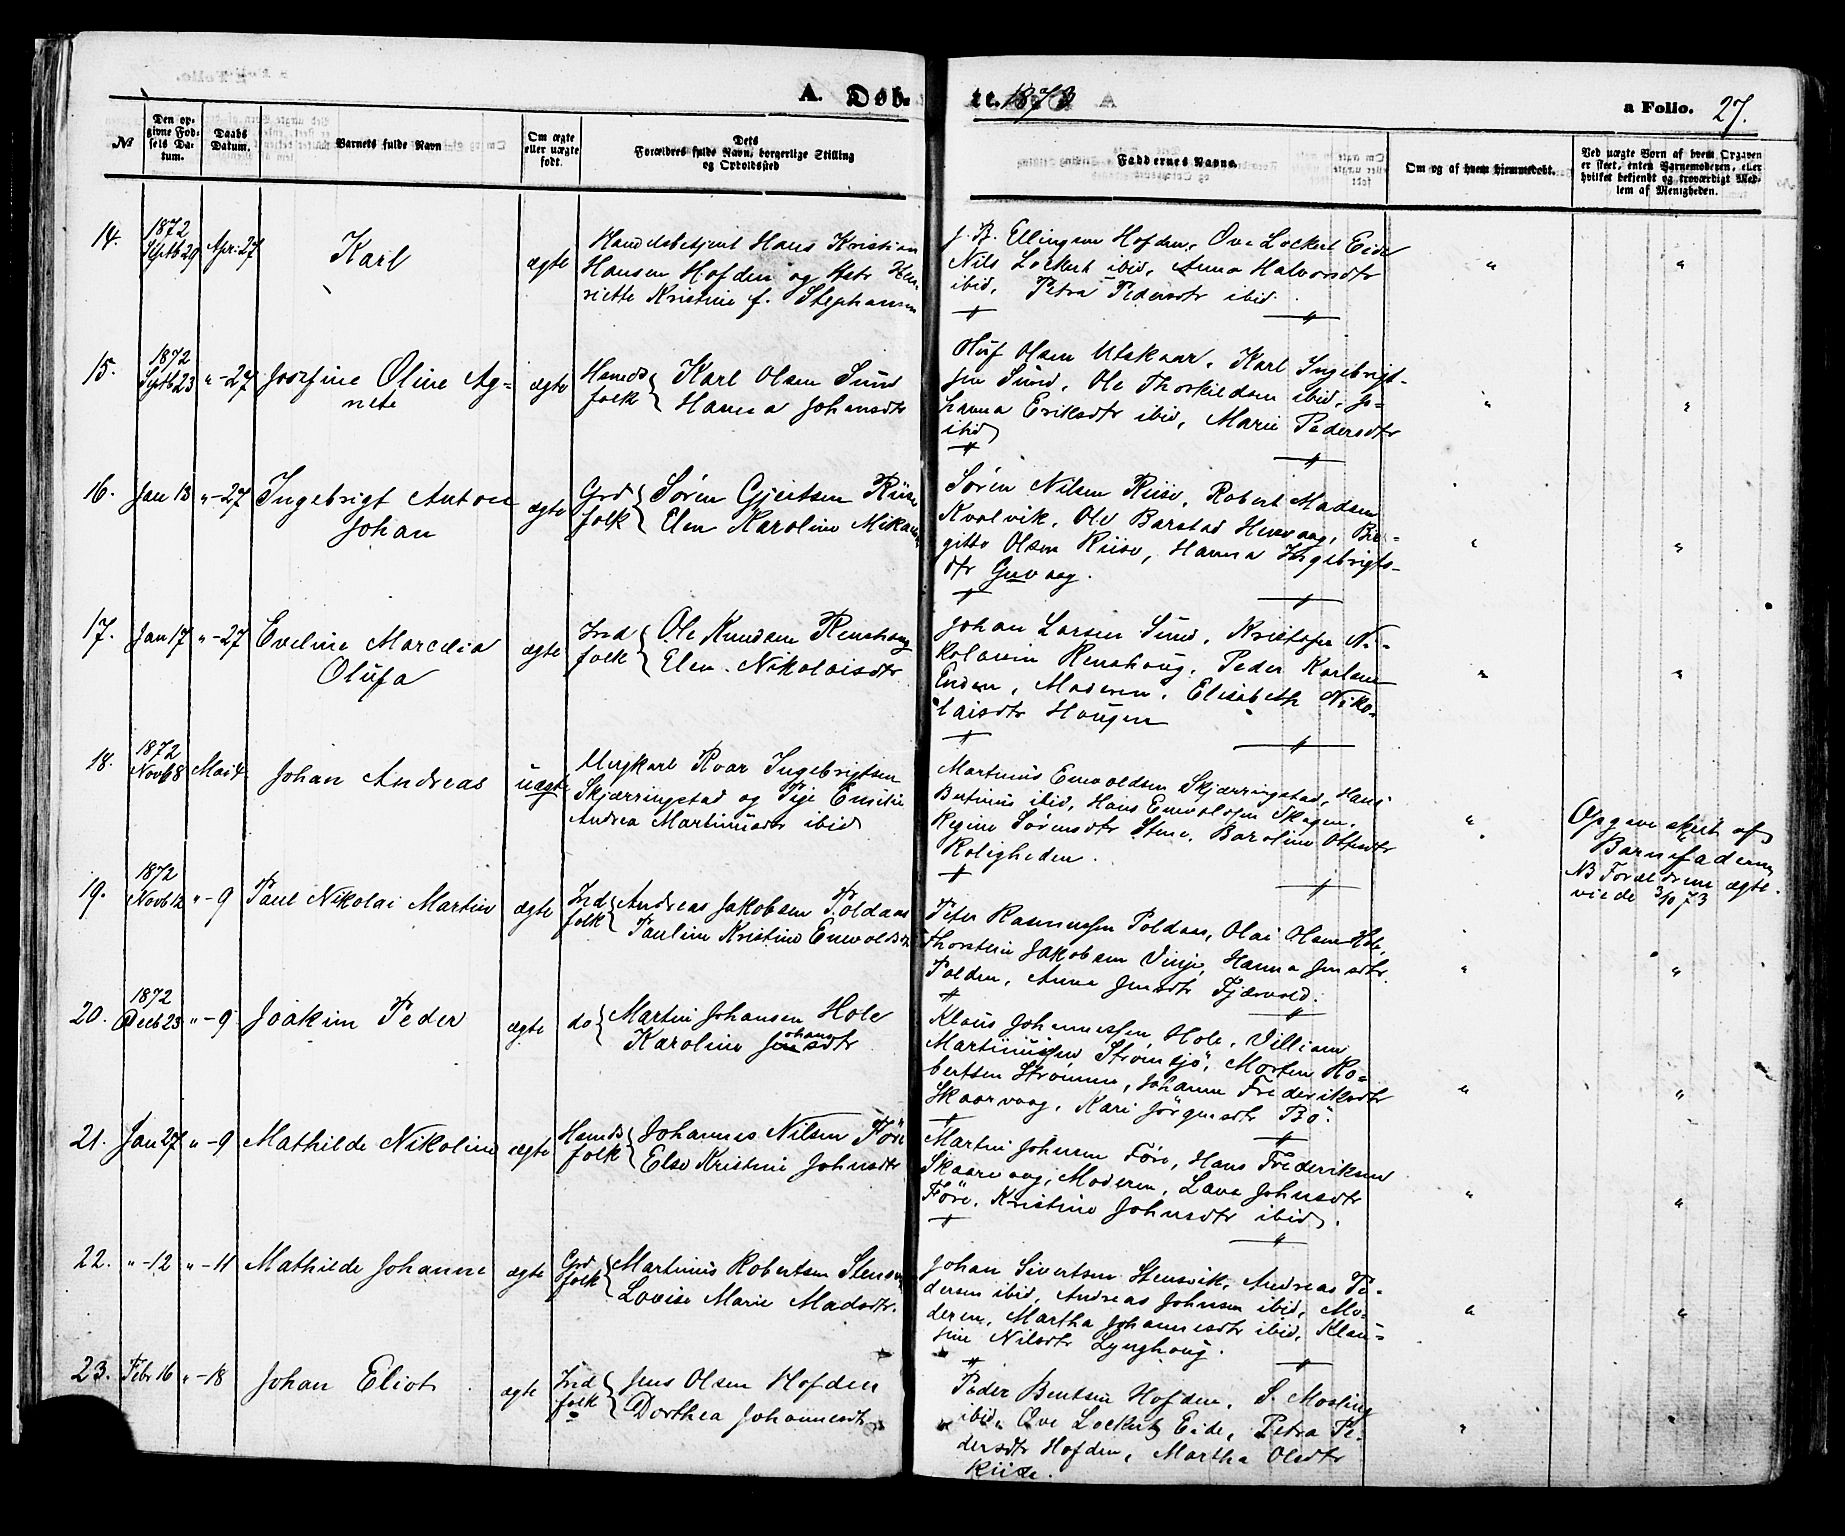 A. Døb- te. 1873 a Folio. 27.
№
Den op-
givne Fød-
sels Da-
tum.
Daabs
Datum.
Barnets fulde Navn
Om ægte
eller uægte
født.
Dets
Forældres fulde Navn, borgerlige Stilling
og Opholdssted
Faddernes Navne.
Om og af hvem hjemmedøbt.
Ved uægte Børn af hvem Opgaven
er skeet, enten Barnemoderen, eller
hvilket bekjendt og troværdigt Med-
lem af Menigheden.
14.
1872
Septb 29
Apr. 27
Karl
ægte
Handelsbetjent Hans Kristian
Hansen Hofden og Hstr Hen-
riette Kristine f. Stephansen
J. B. Ellingsen Hofden, Ove Lockert Eide
Nils Lockert ibid, Anna Halvorsdtr
ibid, Petra Pedersdtr ibid.
"
"
15.
1872
Septb 23
" - 27
Josefine Oline Ag-
nete
ægte
Hmds
folk
Karl Olsen Sund
Hanna Johansdtr
Oluf Olsen Utskaar, Karl Ingebrigt-
sen Sund, Ole Thorkildsen ibid, Jo-
hanna Eriksdtr ibid, Marie Pedersdtr
ibid
"
"
16.
Jan 13
" - 27
Ingebrigt Anton
Johan
ægte
Grd
folk
Søren Gjertsen Riise
Elen Karoline
Søren Nilsen Riise, Robert Madsen
Kvalvik, Ole Barstad, Bir-
gitte Olsen Riise, Hanna Ingebrigts-
dtr Guvaag.
"
"
17.
Jan 17
" - 27
Eveline Marcelia
Olufa
ægte
Ind
folk
Ole Knudsen Renshaug
Elen Nikolaisdtr
Johan Larsen Sund, Kristofer Ni-
kolaisen Renshoug, Peder Karlsen
Enden, Moderen, Elisabeth Niko-
laisdtr Hougen
"
"
18.
1872
Novb 8
Mai 4
Johan Andreas
uægte
Ungkarl Roar Ingebrigtsen
Skjærringstad og Pige Emilie
Andrea Martinusdtr ibid
Martinus Enevoldsen Skjærringstad, Hans
Bertinus ibid, Hans Enevoldsen Skagen,
Regine Sørensdtr Stene, Baroline Ottesdtr
Roligheden.
"
Opgave skeet af
Barnefaderen
NB Forældrene ægte-
viede 3/10 73
19.
1872
Novb 12
" - 9
Paul Nikolai Martin
ægte
Ind
folk
Andreas Jakobsen Poldaas
Pauline Kristine Enevoldsd
Peter Rasmussen Poldaas, Olai Olsen Hole,
Thorstein Jakobsen Vinje, Hanna Jensdtr
Polden, Anna Jensdtr Fjærvold.
"
"
20.
1872
Decb 23
" - 9
Joakim Peder
ægte
do
Martin Johansen Hole
Karoline Johansdtr
Klaus Johannessen Hole, Villiam
Martinussen Strømsjö, Morten Ro-
bertsen Strömme, Johanna Frederiksdtr
Skaarvaag, Kari Jörgensdtr Bö.
"
"
21.
Jan 27
" - 9
Mathilde Nikoline
ægte
Hmds
folk
Johannes Nilsen Före
Else Kristine Johnsdtr
Martin Johnsen Före, Hans Frederiksen
Skaarvaag, Moderen, Lava Johnsdtr
Före, Kristine Johnsdtr ibid.
"
"
22.
" - 12
" - 11
Mathilde Johanne
ægte
Grd
folk
Martinus Robertsen Stensv
Lovise Marie Madsdtr.
Johan Sivertsen Stensvik, Andreas Pe-
dersen ibid, Andreas Johnsen ibid, Mo-
deren, Martha Johannesdtr ibid, Klau-
sine Nilsdtr Lynghoug.
"
"
23.
Febr 16
" - 18
Johan Eliot
ægte
Ind
folk
Jens Olsen Hofden
Dorthea Johannesdtr
Peder Bentsen Hofden, S. Mosling
ibid, Ove Lockert Eide, Petra Pe-
dersdtr Hofden, Martha Olsdtr
Riise.
"
"